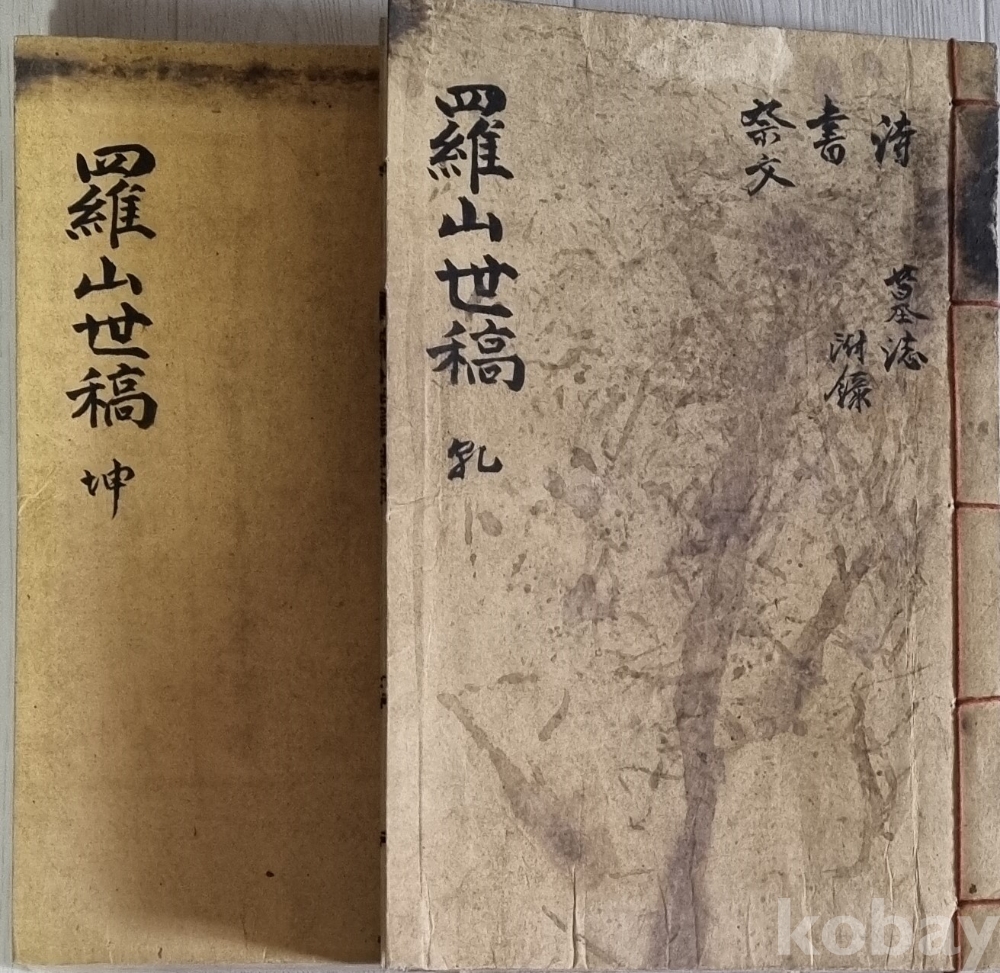 詩
書
祭文
墓誌
附錄
羅山世稿 乾
羅山世稿 坤
kobay